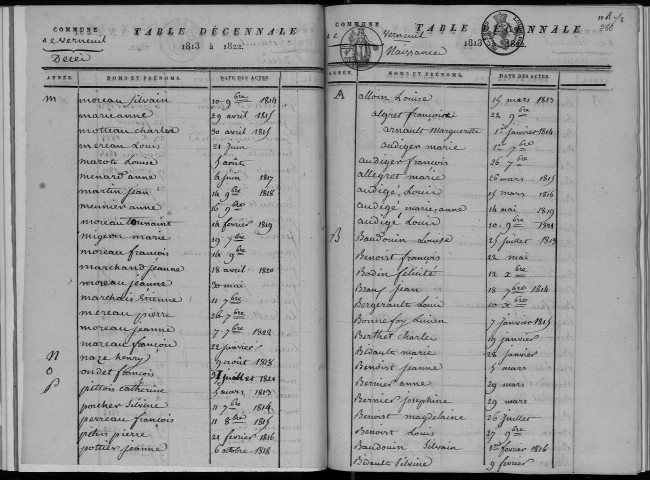 COMMUNE
de Verneuil
Décès
TABLE DÉCENNALE
1813 à 1822.
ANNÉE. NOMS ET PRÉNOMS. DATE DES ACTES.
M moreau silvain 10 9bre 1814
marie anne 29 avril 1815
motteau charles 30 avril 1815
mereau Louis 21 juin
marote Louise 5 août
menard anne 4 juin 1817
martin jean 14 9bre 1818
meunier anne 16 9bre
moreau toussaint 14 février 1819
migeon marie 19 7bre
moreau françois 14 9bre
marchand jeanne 18 avril 1820
moreau jeanne 30 mai
marchais Étienne 11 7bre
mereau pierre 26 7bre
moreau jeanne 7 7bre 1822
moreau françois 22 janvier
N naze henry 9 août 1818
O ondet françois juillet
P pittois catherine 5 mars 1813
porcher silvine 11 7bre 1814
perreau françois 11 8bre 1815
pelois pierre 21 février 1816
pottier jeanne 6 octobre 1818
COMMUNE
de Verneuil
Naissance
TABLE DÉCENNALE
1813 à 1822.
ANNÉE. NOMS ET PRÉNOMS. DATE DES ACTES.
A alloin Louise 15 mars 1813
algret françoise 22 9bre
arnault Marguerite 1er janvier 1814
audiger marie 1er 7bre
audiger francois 26 7bre
allegret marie 26 mars 1815
audigé Louis 15 mars 1816
audigé marie anne 14 mai 1819
audigé Louis 10 9bre 1821
B Baudouin Louise 25 juillet 1813
Benoist françois 22 mai
Bodin félicité 12 xbre
Beau jean 18 7bre 1814
Bergerault Louis 10 xbre
Bonnefoy Lucien 7 janvier 1815
Berthet charles 19 janvier
Bidault marie 28 janvier
Benoist jeanne 5 mars
Bernier anne 29 mars
Bernier josephine 29 mars
Benoist magdelaine 26 juillet
Benoist Louis 27 9bre
Baudouin Silvain 1er février 1816
Bidault Silvine 9 février